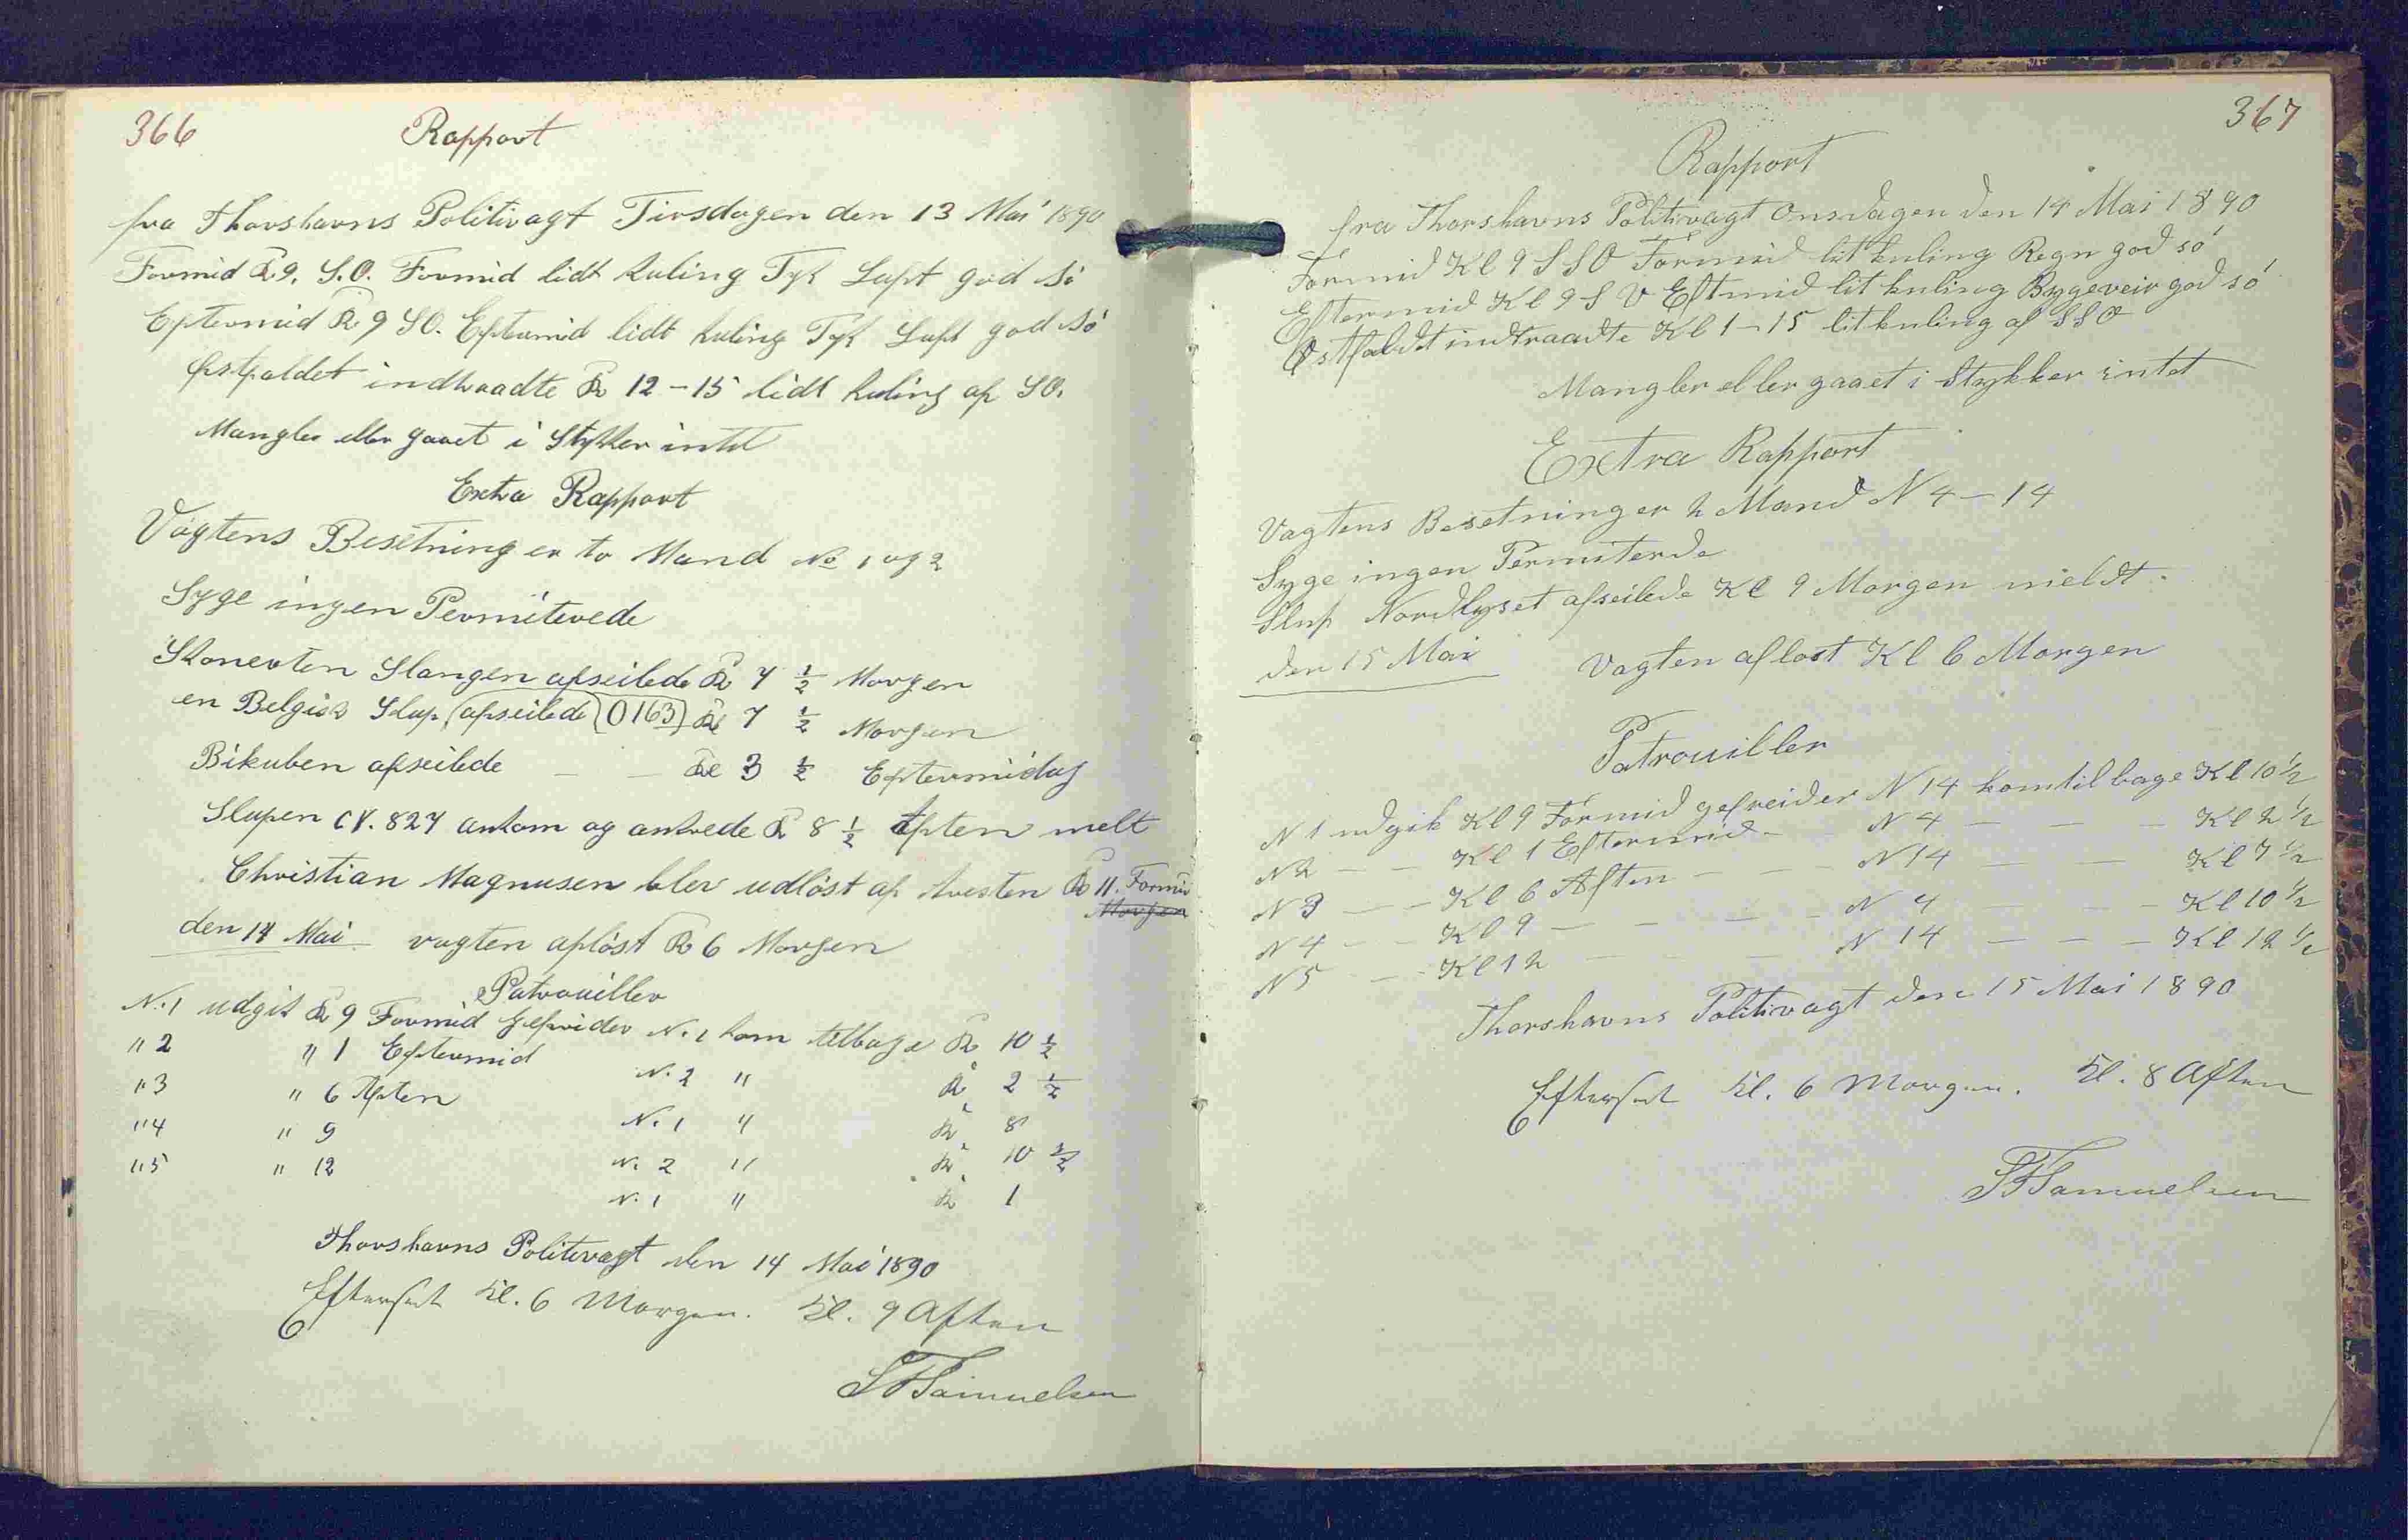 366
Rapport
fra Thorshavns Politivagt Tirsdagen den 13 Mai 1890
Formid Kl 9. S.O. Formid lidt kuling Tyk Luft god sö
Eftermid Kl 9 SO. Eftermid lidt kuling Tyk Luft god sö
østfaldet indtraadte Kl 12-15 lidt kuling af SO.
Mangler eller gaaet i Stykker intet
Extra Rapport
Vagtens Besetning er to Mand No 1 og 2
Syge ingen Permiterede
Skonerten Slangen afseilede Kl 7 1/2 Morgen
en Belgisk Slup (afseilede) (0163) Kl 7 1/2 Morgen
Bikuben afseilede — — Kl 3 1/2 Eftermidag
Slupen CY. 827 ankom og ankrede Kl 8 1/2 Aften melt
Christian Magnusen blev udlöst af Aresten Kl 11. Formid
Morgen
den 14 Mai vagten aflöst Kl 6 Morgen
Patrouiller
N. 1 udgik Kl 9 Formid gefreider N. 1 kom tilbage Kl 10 1/2
" 2 " 1 Eftermid N. 2 " Kl 2 1/2
" 3 " 6 Aften N. 1 " Kl 8
" 4 " 9 N. 2 " Kl 10 1/2
" 5 " 12 N. 1 " Kl 1
Thorshavns Politivagt den 14 Mai 1890
Efterset Kl. 6 Morgen. Kl. 9 Aften
SFSamuelsen
367
Rapport
fra Thorshavns Politivagt Onsdagen den 14 Mai 1890
Formid Kl 9 SSO Formid lit kuling Regn god sö
Eftermid Kl 9 S V Eftmid lit kuling Bygeveir god sö
Østfaldet indtraadte Kl 1-15 lit kuling af SSO
Mangler eller gaaet i Stykker intet
Extra Rapport
Vagtens Besetning er 2 Mand N 4-14
Syge ingen Permiterde
Slup Nordlyset afseilede Kl 9 Morgen meldt.
den 15 Mai Vagten aflost Kl 6 Morgen
Patrouiller
N 1 udgik Kl 9 Formid gefreider N 14 kom til bage Kl 10 1/2
N 2 — — Kl 1 Eftermid — N 4 — — — Kl 2 1/2
N 3 — — Kl 6 Aften — — N 14 — — Kl 7 1/2
N 4 — — Kl 9 — — — N 4 — — — Kl 10 1/2
N 5 — — Kl 12 — — — N 14 — — — Kl 12 1/2
Thorshavns Politivagt den 15 Mai 1890
Efterset Kl. 6 Morgen. Kl. 8 Aften
SFSamuelsen